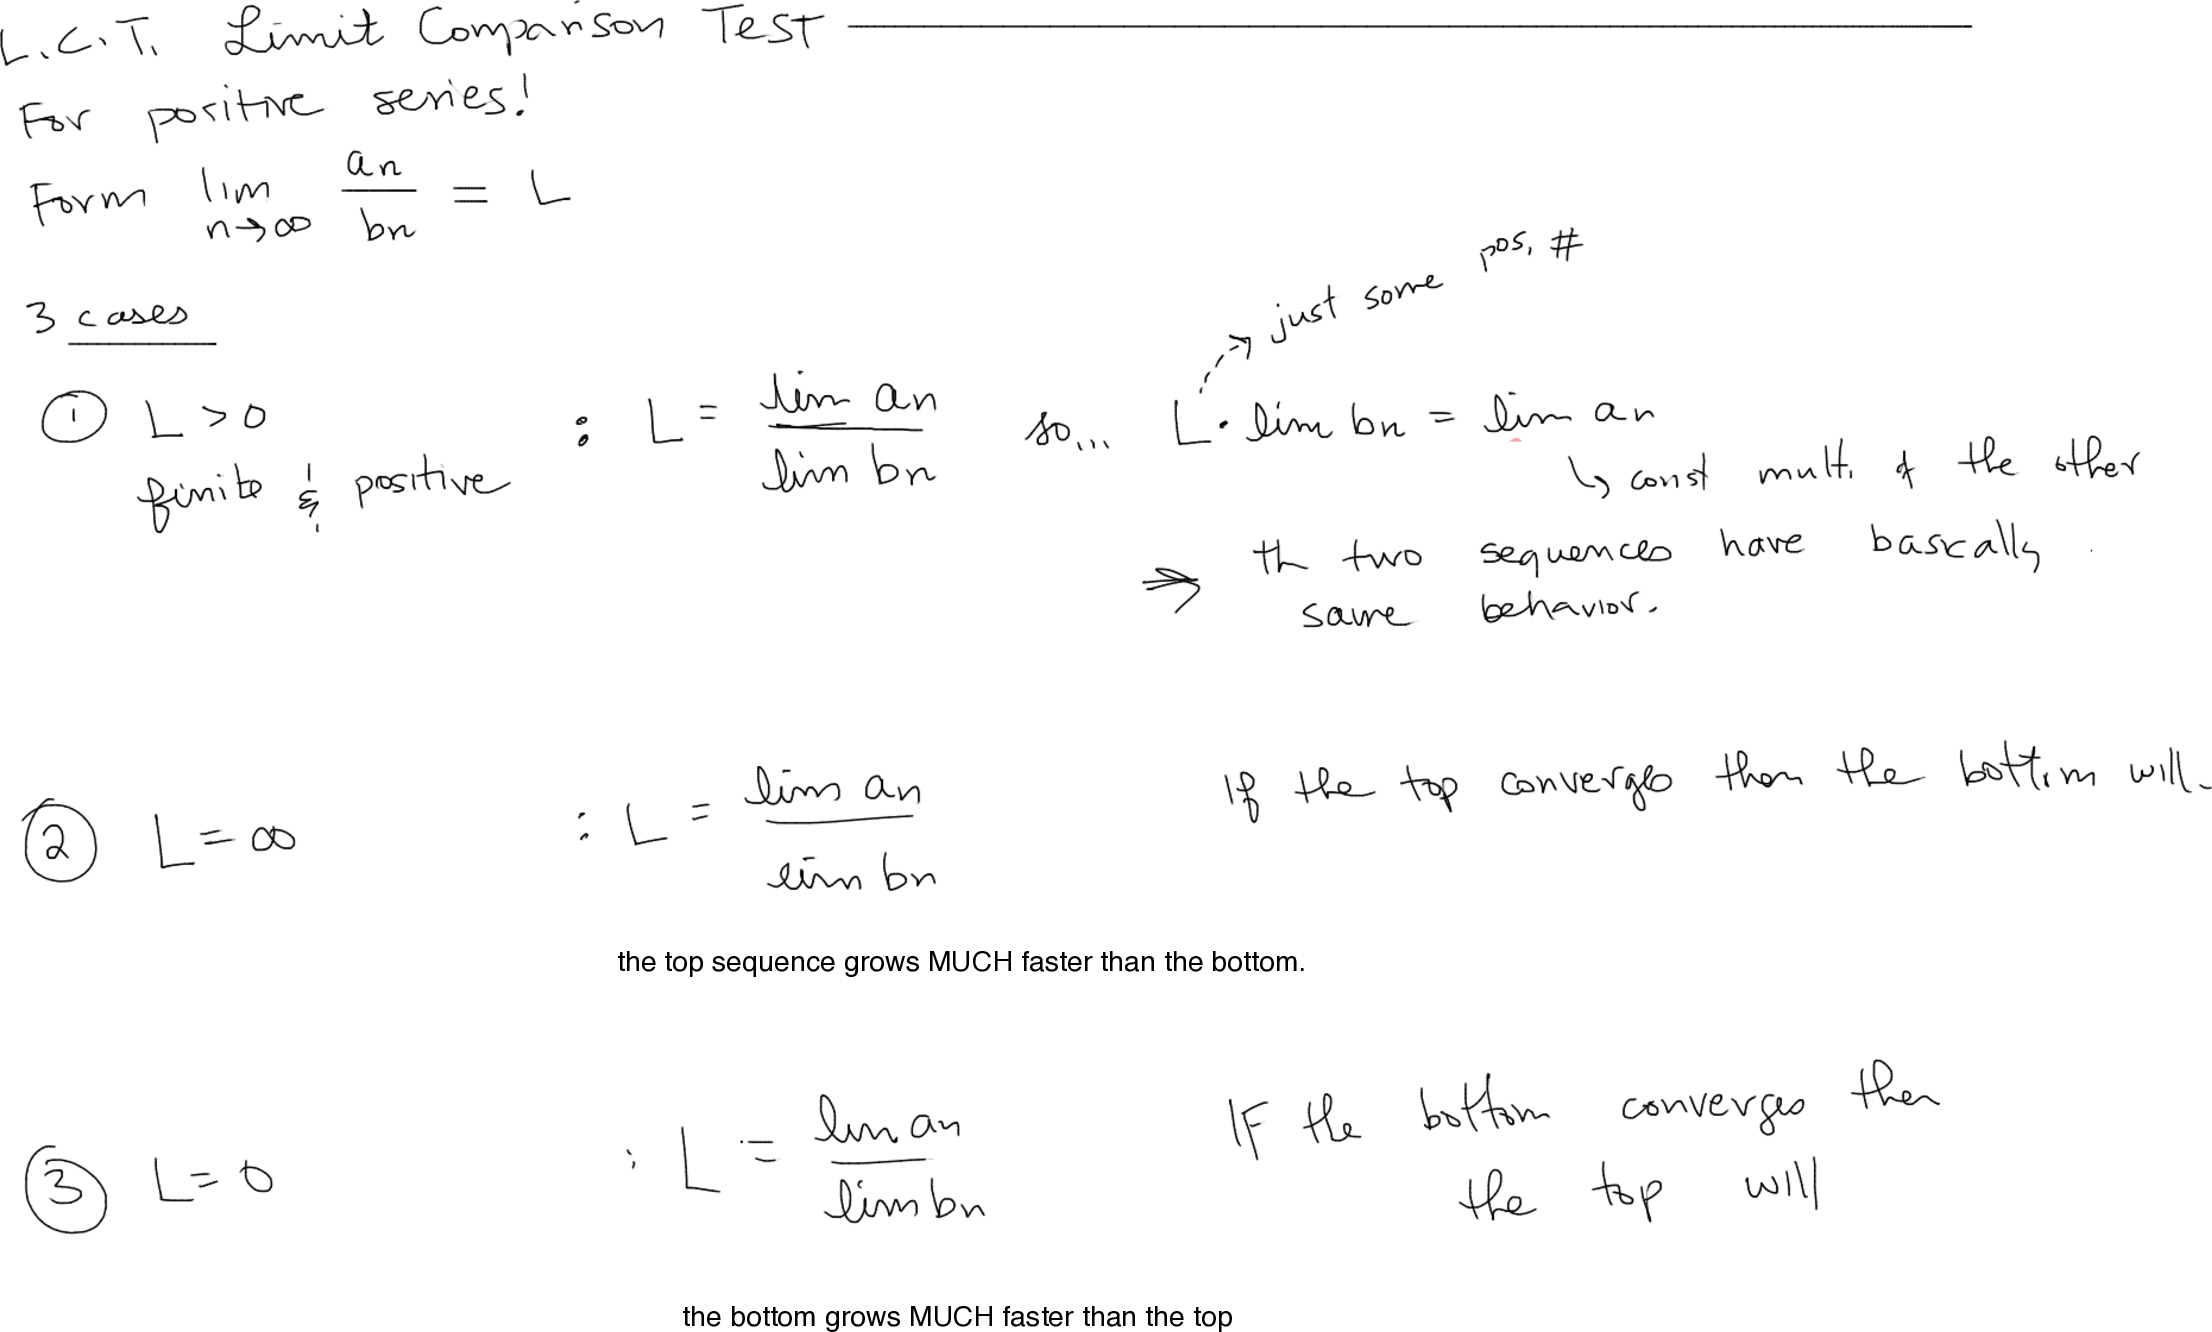 L.C.T. Limit Comparison Test
For positive series!
Form lim n→∞ an/bn = L
3 cases
① L > 0 : L = lim an / lim bn so... L · lim bn = lim an
just some pos. #
finite & positive
↳ const mult. of the other
⇒ th two sequences have bascally
same behavior.
② L = ∞ : L = lim an / lim bn If the top converges then the bottom will.
the top sequence grows MUCH faster than the bottom.
③ L = 0 : L = lim an / lim bn IF the bottom converges then
the top will
the bottom grows MUCH faster than the top